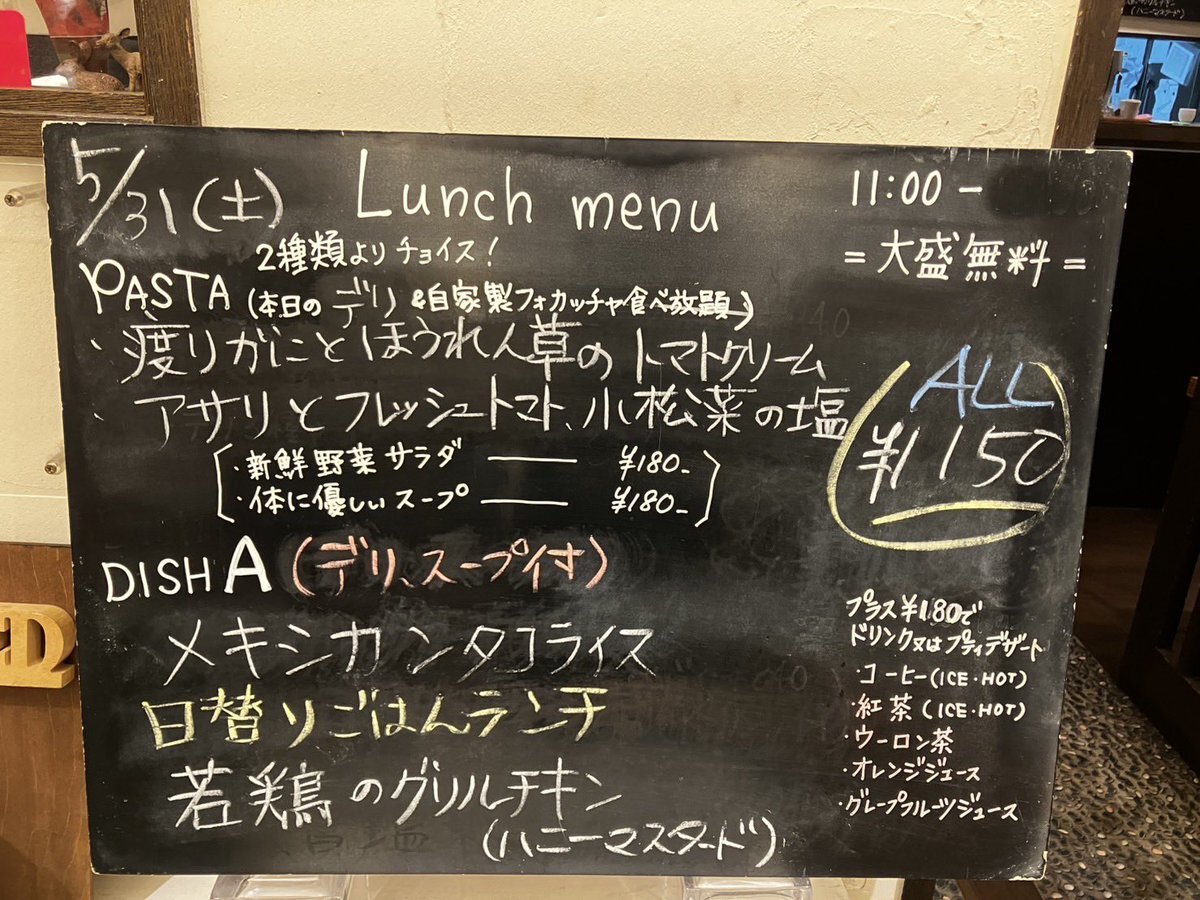 5/31(土) Lunch menu
11:00 -
= 大盛無料 =
2種類よりチョイス!
PASTA (本日のデリ &自家製フォカッチャ食べ放題)
・渡りがにとほうれん草のトマトクリーム
・アサリとフレッシュトマト、小松菜の塩
ALL
¥1150
・新鮮野菜サラダ —— ¥180-
・体に優しいスープ —— ¥180-
DISH A (デリ、スープ付き)
メキシカンタコライス
日替りごはんランチ
若鶏のグリルチキン
(ハニーマスタード)
プラス¥180で
ドリンク又はプティデザート
・コーヒー(ICE・HOT)
・紅茶(ICE・HOT)
・ウーロン茶
・オレンジジュース
・グレープフルーツジュース